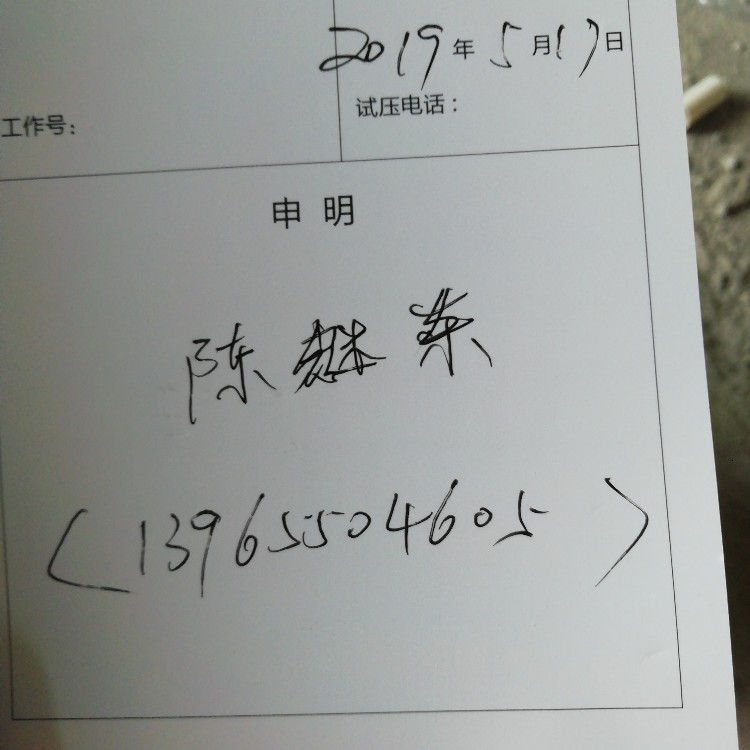 2019年5月17日
工作号：
试压电话：
申 明
陈
（13965504605）